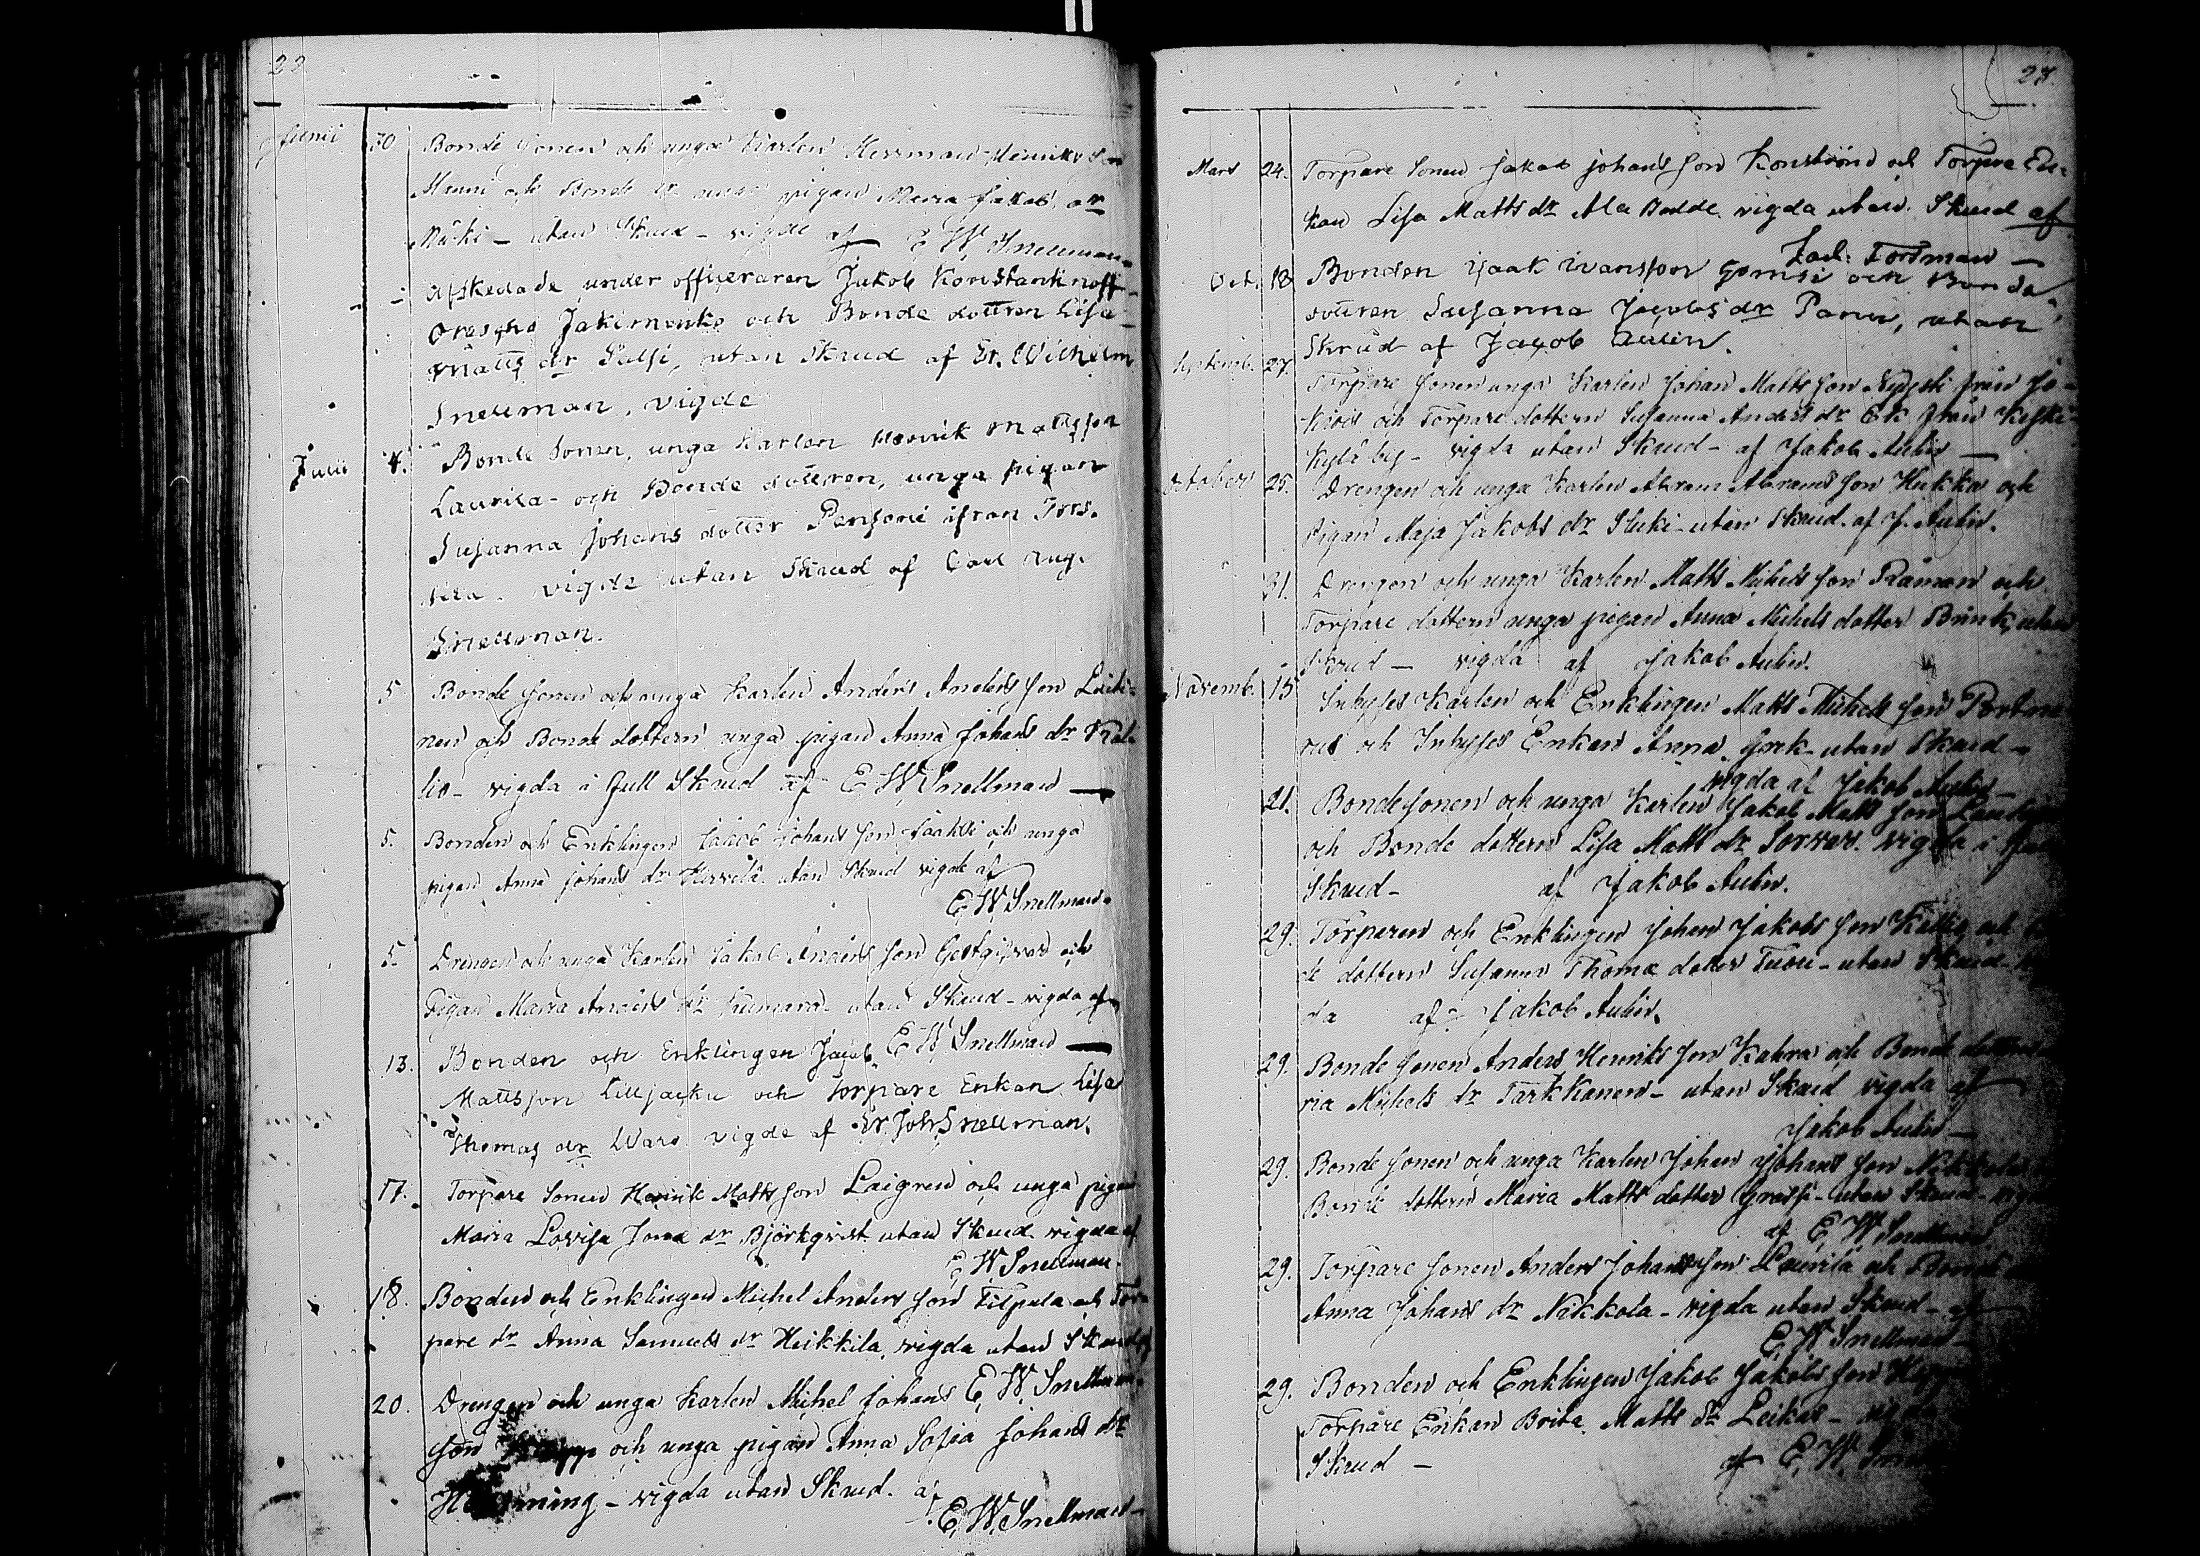 22
Junii 30 Bonde Sonen och unga Karlen Herrman Henriks Son
Manni och Bonde dr unga pigan Maria Jakobs dr
Mäki - utan Skrud - vigde af E W Snellman
Afskedade under officeraren Jakob Konstantinoff
Jakimenko och Bonde dottren Lisa
Matts dr utan Skrud af Er. Wilhelm
Snellman, vigde
Julii 4. Bonde Sonen, unga Karlen Henrik Matts son
Laurila - och Bonde dottren, unga pigan
Susanna Johans dotter ifrån Yors-
vigde utan Skrud af Carl Aug.
Snellman.
5 Bonde Sonen och unga Karlen Anders Anders Son
nen och Bonde dottern unga pigan Anna Johans dr Kal-
lio - vigda i full Skrud af E W Snellman
5. Bonden och Enklingen Jakob Johans Son Jaakki och unga
pigan Anna Johans dr utan Skrud vigde af
E W Snellman
5. Drengen och unga Karlen Jakob Anders Son Gestgifvar och
Pigan Maria Anders dr utan Skrud - vigda af
E W Snellman
13. Bonden och Enklingen Jacob
Mattsson Lilljacku och Torpare Enkan Lisa
Thomas dr vigde af Er. Joh Snellman.
17. Torpare Sonen Henrik Matts Son Laigren och unga pigan
Maria Lovisa Jona dr Björkqvist utan Skrud. vigda af
E W Snellman.
18. Bonden och Enklingen Michel Anders Son Filpula och Tor-
pare dr Anna Samuels dr Heikkila, vigda utan Skrud af
E W Snellman.
20. Drengen och unga Karlen Michel Johans
Son och unga pigan Anna Sofia Johans dr
- vigda utan Skrud. af
E. W. Snellman
23.
Mars 24. Torpare Sonen Jakob Johans Son Konström och Torpare En-
kan Lisa Matts dr Ala Bodde. vigda utan Skrud af
Jak. Forsman
Oct. 18 Bonden Isaak Ivansson Gomsi och Bonde
dottren Susanna Jacobs dr Panu, utan
Skrud af Jacob Aulin.
Septemb. 27. Torpare Sonen unga Karlen Johan Matts Son från Jo-
kirois och Torpare dottern Susanna Anders dr Ek från Keski-
kylä by - vigda utan Skrud - af Jakob Aulin
October 25. Drengen och unga Karlen Abram Abrams Son Hukka och
Pigan Maja Jakobs dr - utan Skrud. af J. Aulin.
31. Drengen och unga Karlen Matts Michels Son Råman och
Torpare dottern unga pigan Anna Michels dotter Brink, utan
Skrud - vigda af Jakob Aulin.
Novemb. 15 Inhyses Karlen och Enklingen Matts Michels Son
och Inhyses Enkan Anna - utan Skrud -
vigda af Jakob Aulin
21. Bonde Sonen och unga Karlen Jakob Matts Son
och Bonde dottern Lisa Matts dr Sorvar. vigda i full
Skrud - af Jakob Aulin.
29. Torparen och Enklingen Johan Jakobs Son och
de dottern Susanna Thomæ dotter - utan Skrud -
da af Jakob Aulin.
29. Bonde Sonen Anders Henriks Son Kahra och Bonde
ria Michels dr Tarkkanen - utan Skrud vigda af
Jakob Aulin
29. Bonde Sonen och unga Karlen Johan Johans Son
Bonde dottern Maria Matts dotter - utan Skrud -
af E W Snellman
29. Torpare Sonen Anders Johans Son Laurila och
Anna Johans dr Nikkola - vigda utan Skrud - af
E W Snellman
29. Bonden och Enklingen Jakob Jakobs Son
Torpare Enkan Brita Matts dr Leikas -
Skrud - af E. W.